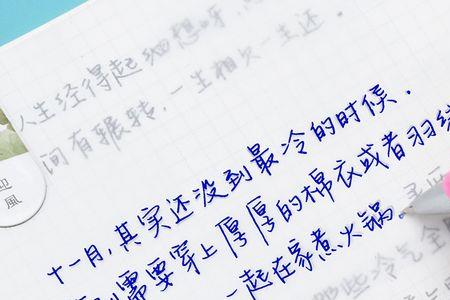 人生经得起细想呀，
间有辗转，一生相欠一生还.
風
十一月，其实还没到最冷的时候.
需要穿上厚厚的棉衣或者羽绒
一起在家煮火锅。
那些冷气全